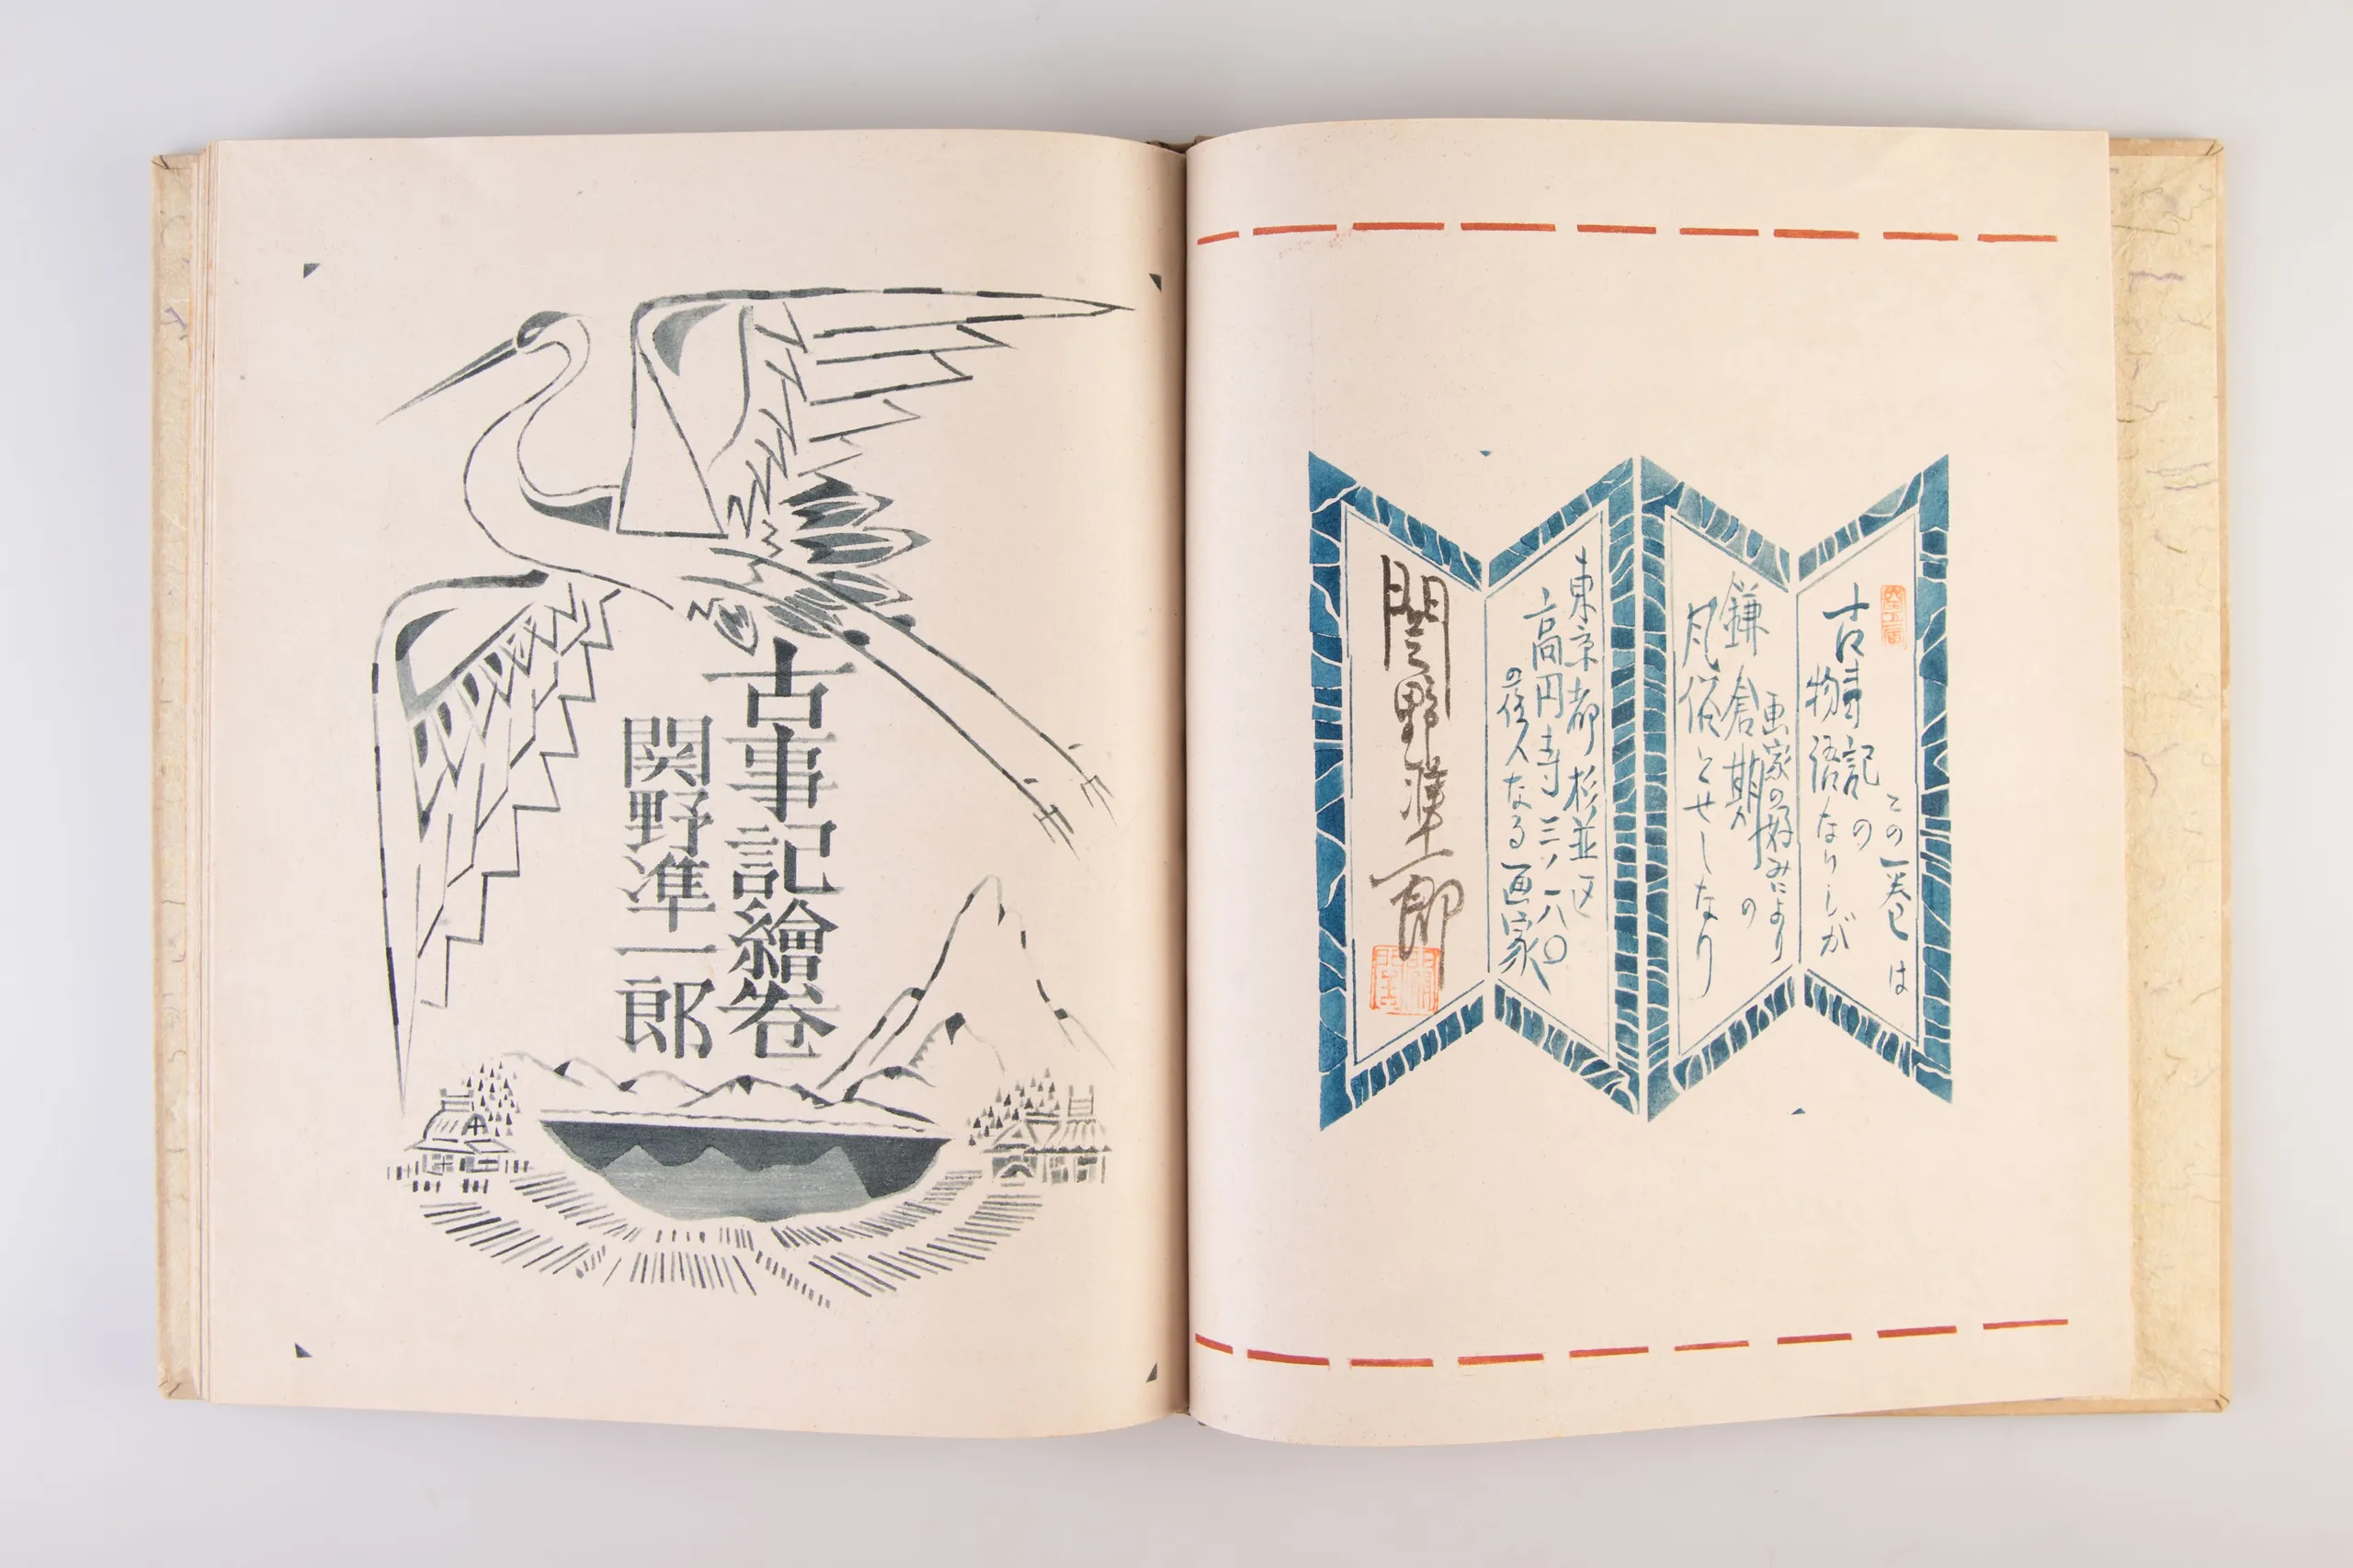 この一巻は
古事記の
物語なりしが
画家の好みにより
鎌倉期の
風俗とせしなり
東京都杉並区
高円寺三ノ一八〇
の住人なる画家
関野凖一郎
古事記繪巻
関野凖一郎